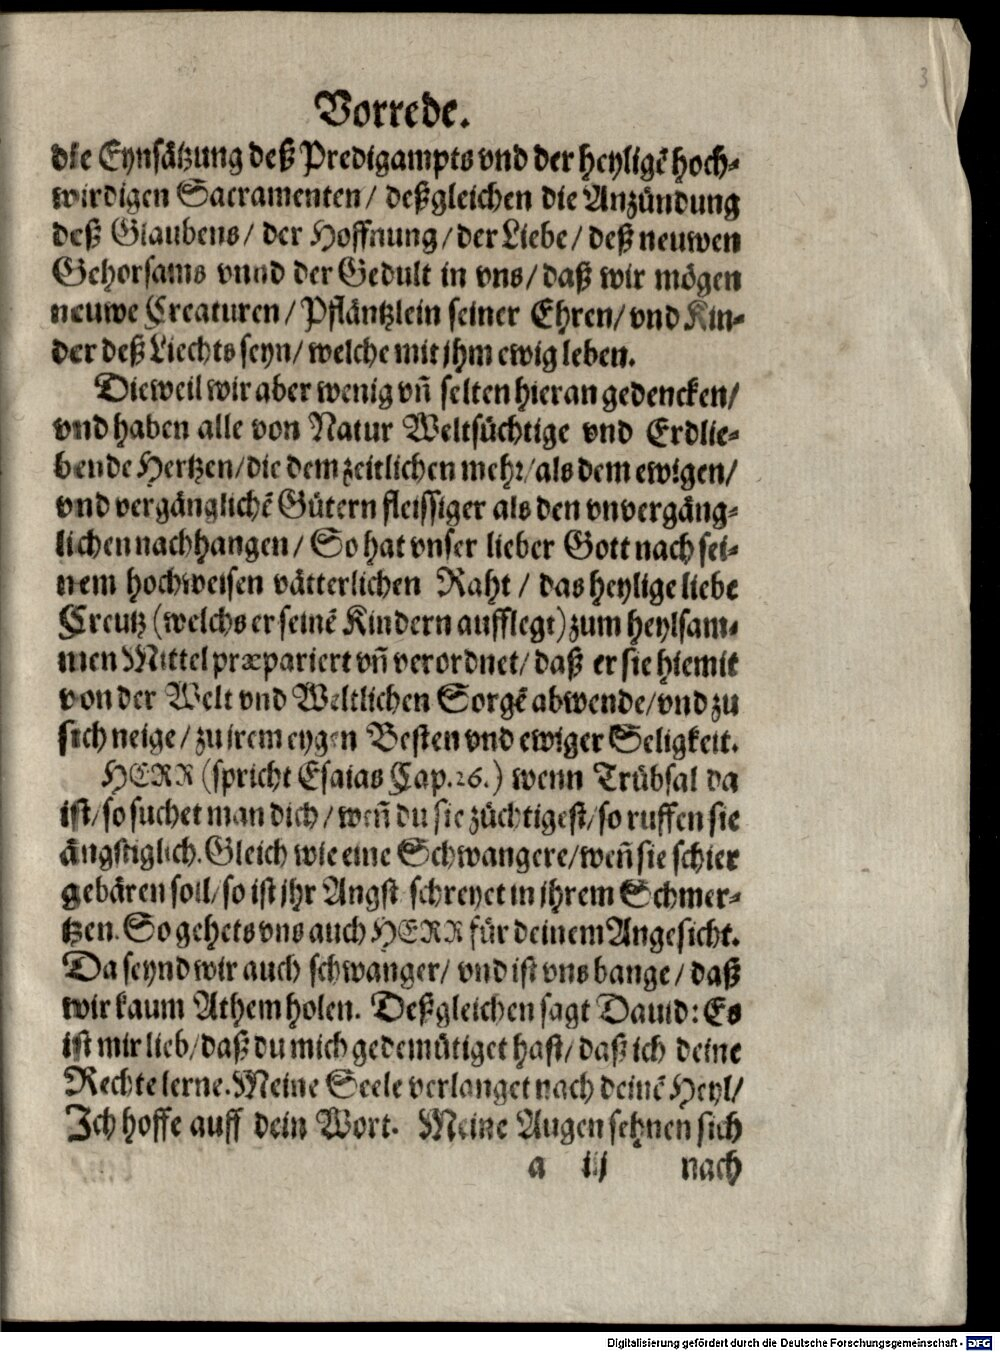 3
Vorrede.
die Eynsätzung deß Predigampts vnd der heyligẽ hoch-
wirdigen Sacramenten/ deßgleichen die Anzündung
deß Glaubens/ der Hoffnung/ der Liebe/ deß neuwen
Gehorsams vnnd der Gedult in vns/ daß wir mögen
neuwe Creaturen/ Pfläntzlein seiner Ehren/ vnd Kin-
der deß Liechts seyn/ welche mit jhm ewig leben.
Dieweil wir aber wenig vñ selten hieran gedencken/
vnd haben alle von Natur Weltsüchtige vnd Erdlie-
bende Hertzen/ die dem zeitlichen mehr/ als dem ewigen/
vnd vergänglichẽ Gütern fleissiger als den vnvergäng-
lichen nachhangen/ So hat vnser lieber Gott nach sei-
nem hochweisen vätterlichen Raht/ das heylige liebe
Creutz (welchs er seinẽ Kindern aufflegt) zum heylsam-
men Mittel præpariert vñ verordnet/ daß er sie hiemit
von der Welt vnd Weltlichen Sorgẽ abwende/ vnd zu
sich neige/ zu irem eygen Besten vnd ewiger Seligkeit.
HERR (spricht Esaias Cap. 26.) wenn Trübsal da
ist/ so suchet man dich/ weñ du sie züchtigest/ so ruffen sie
ängstiglich. Gleich wie eine Schwangere/ weñ sie schier
gebären soll/ so ist jhr Angst schreyet in jhrem Schmer-
tzen. So gehets vns auch HERR für deinem Angesicht.
Da seynd wir auch schwanger/ vnd ist vns bange/ daß
wir kaum Athem holen. Deßgleichen sagt Dauid: Es
ist mir lieb/ daß du mich gedemütiget hast/ daß ich deine
Rechte lerne. Meine Seele verlanget nach deinẽ Heyl/
Ich hoffe auff dein Wort. Meine Augen sehnen sich
a iij nach
Digitalisierung gefördert durch die Deutsche Forschungsgemeinschaft - DFG